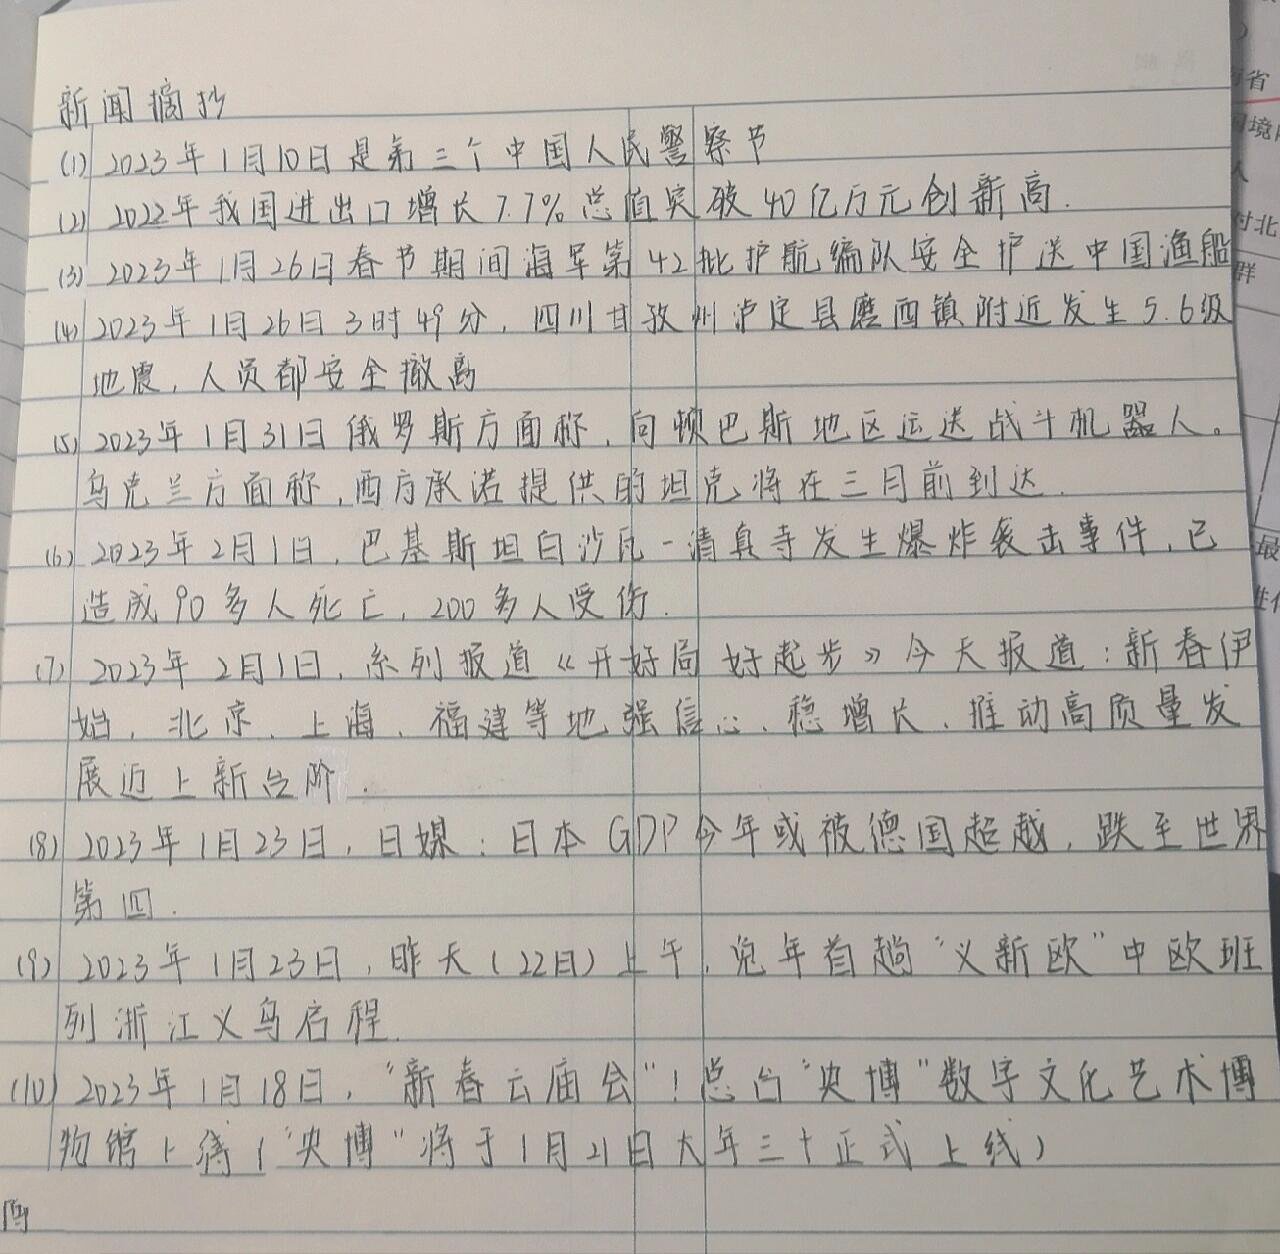 新闻摘抄
(1) 2023年1月10日是第三个中国人民警察节
(2) 2022年我国进出口增长7.7%总值突破40亿万元创新高.
(3) 2023年1月26日春节期间海军第42批护航编队安全护送中国渔船
(4) 2023年1月26日3时49分,四川甘孜州泸定县磨西镇附近发生5.6级
地震,人员都安全撤离
(5) 2023年1月31日俄罗斯方面称,向顿巴斯地区运送战斗机器人。
乌克兰方面称,西方承诺提供的坦克将在三月前到达.
(6) 2023年2月1日,巴基斯坦白沙瓦一清真寺发生爆炸袭击事件,已
造成90多人死亡,200多人受伤.
(7) 2023年2月1日,系列报道《开好局 好起步》今天报道:新春伊
始,北京、上海、福建等地强信心、稳增长、推动高质量发
展迈上新台阶.
(8) 2023年1月23日,日媒:日本GDP今年或被德国超越,跌至世界
第四.
(9) 2023年1月23日,昨天(22日)上午,兔年首趟“义新欧”中欧班
列浙江义乌启程.
(10) 2023年1月18日,“新春云庙会”!总台“央博”数字文化艺术博
物馆上线(“央博”将于1月21日大年三十正式上线)
省
境
人
对北
群
最